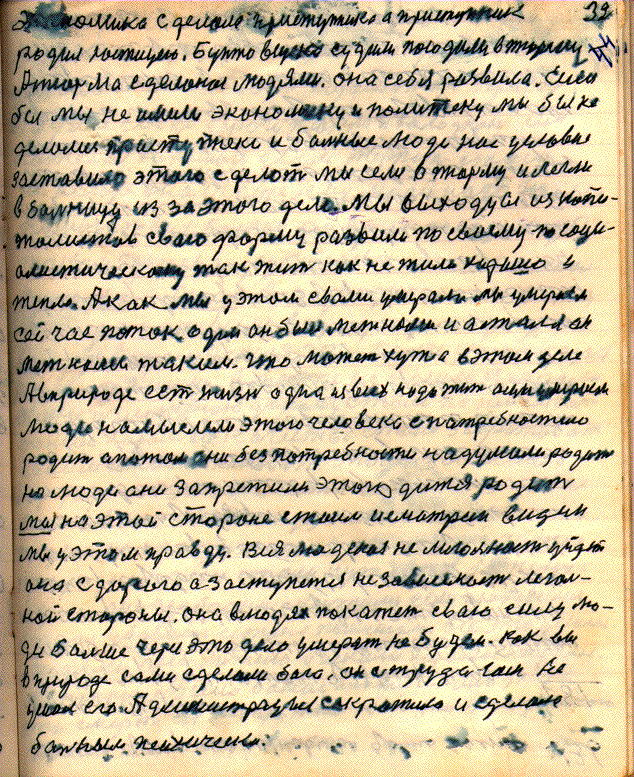 39
Экономика сделала приступника а приступник
родил юстицию. Будто вцуски судим посодили в тюрму
А тюрма сделоная людями. она себя развила. Если
бы мы не имели экономику и политеку мы бы не
делали приступнека и больные люди нас условие
заставило этого сделот мы сели в тюрму и легли
в больницу из за этого дела. Мы выходуси из копи-
толистов сваю форму развили по своему по соци-
алистическому так жит как не жили хорошо и
тепло. А как мы у этом своем умерали мы умераем
сей час поток один он был мет ноши и астался он
таким. что может хута в этом деле
А в природе ест жизн одна из всех надо жит а мы умераем
Люди намыслели этого человека с потребностею
родит а потом ани без потребности надумали родит
но люди ани запретили этого дитя родит
мы на этой стороне стоим и смотрем видим
мы у этом правду. Вся людская не уйдет
она с дорого а заступется независемост легон-
кой стороны. она в людях покажет сваю силу лю-
ди больше через это дело умерат не будем. Как вы
в природе сами сделали бога. он
ушол его Администрацыя сократила и сделала
больным психическим.